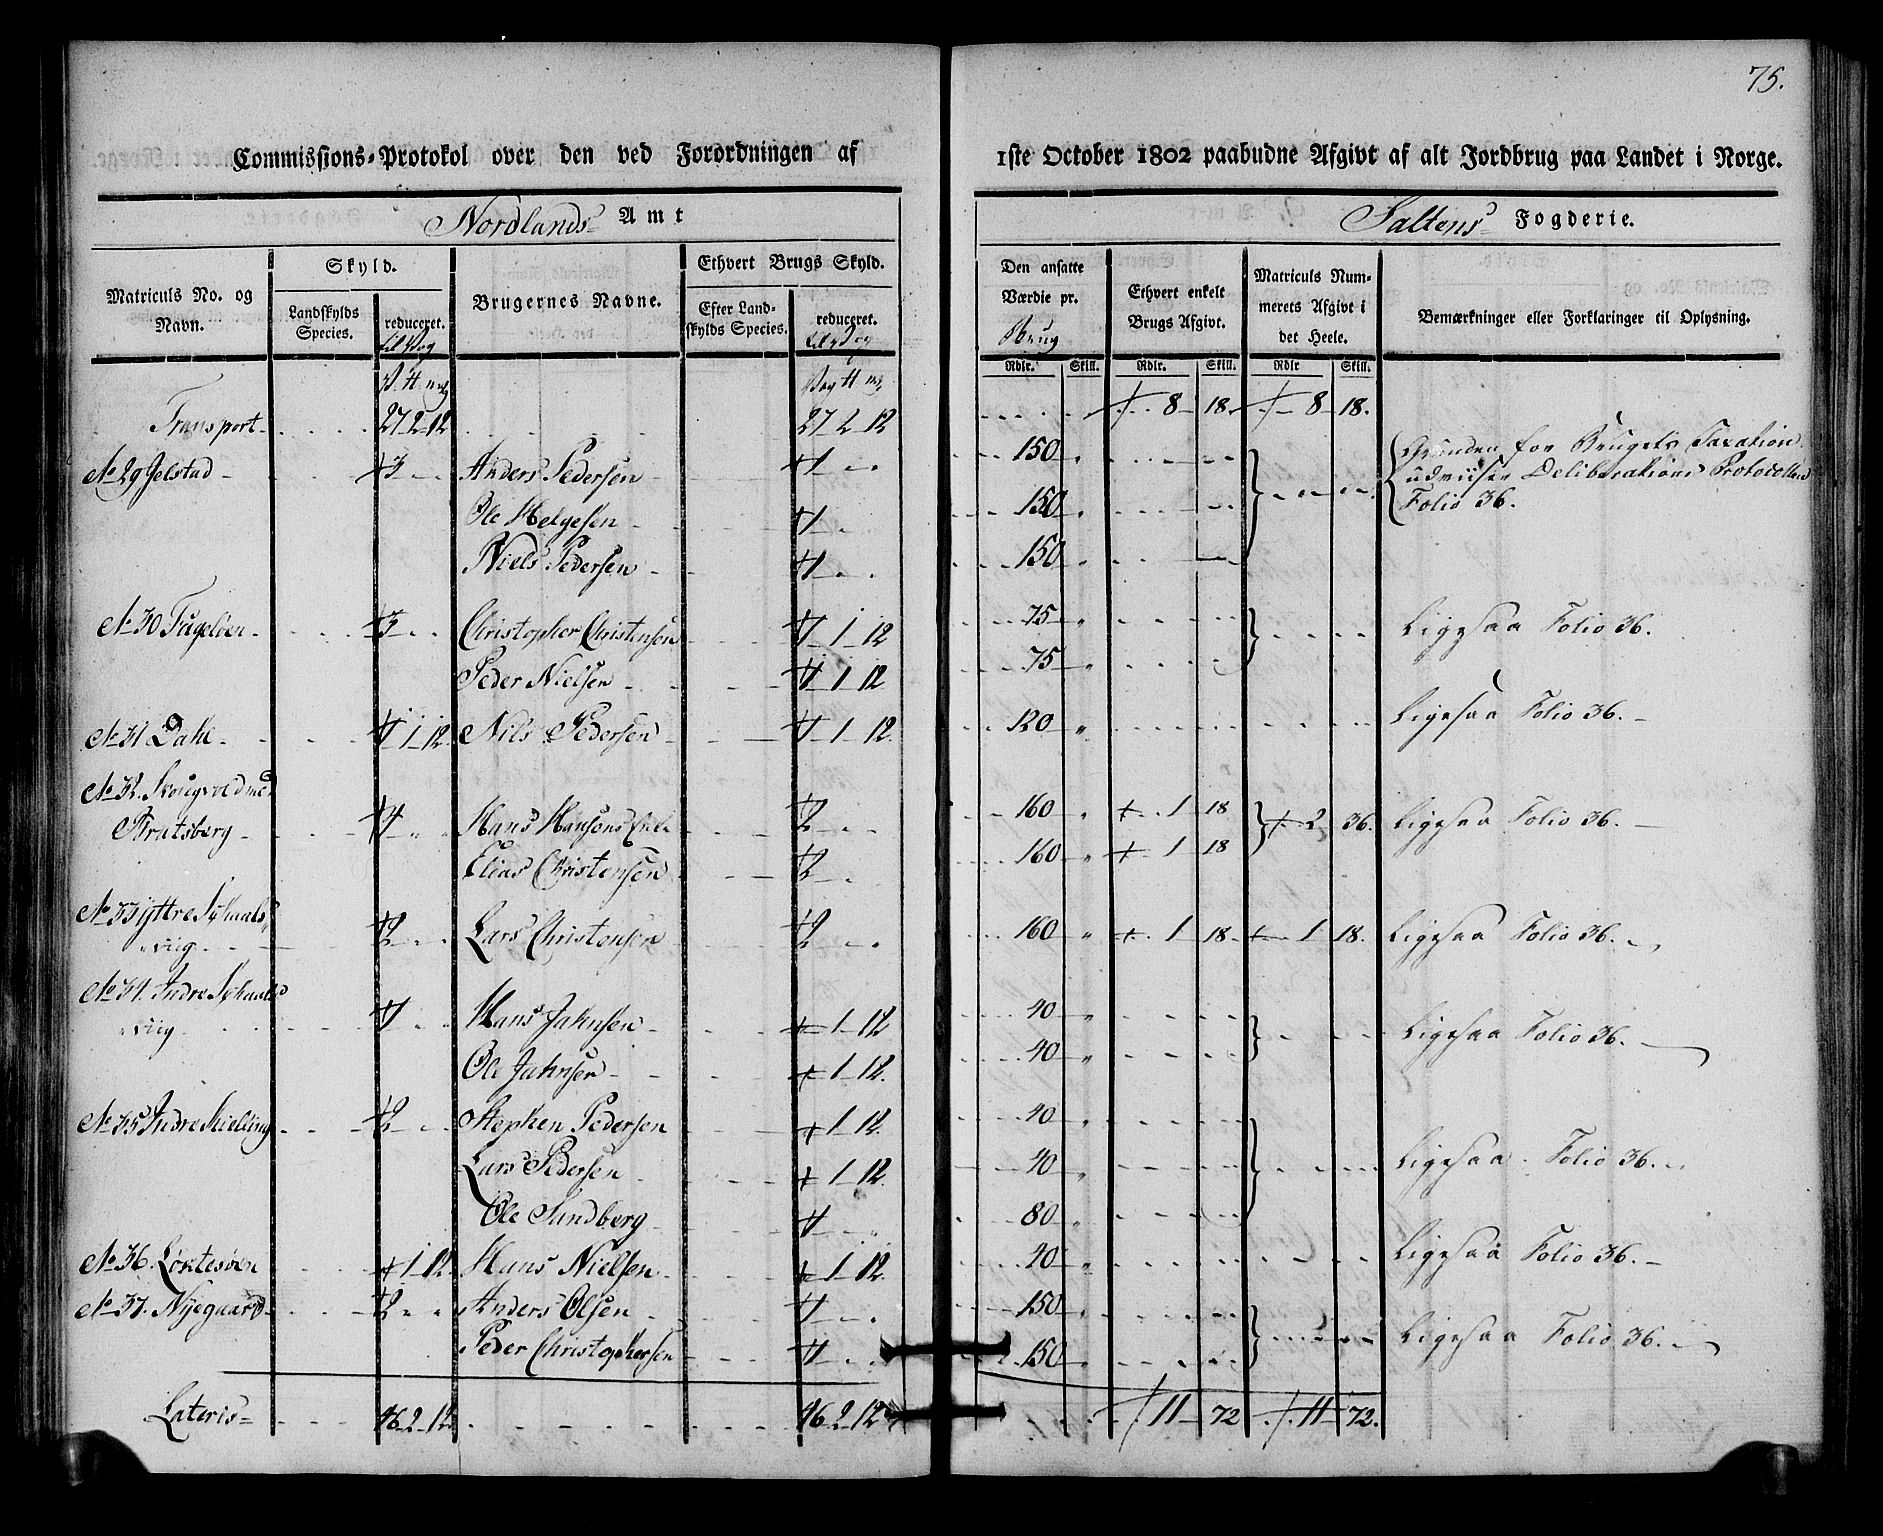 75.
Commissions-Protokol over den ved Forordningen af 1ste October 1802 paabudne Afgivt af alt Jordbrug paa Landet i Norge.
Nordlands Amt Saltens Fogderie.
Matriculs No. og Navn. Skyld. Landskylds Species. reduceret. til Vog Brugernes Navne. Ethvert Brugs Skyld. Efter Landskylds Species. reduceret. til Vog Den ansatte Værdie pr. Brug Ethvert enkelt Brugs Afgivt. Matriculs Nummerets Afgivt i det Heele. Bemærkninger eller Forklaringer til Oplysning.
Rdlr. Skill. Rdlr. Skill. Rdlr Skill.
Transport 27 2 12 27 2 12 8 18. 8 18.
No 29 Jelstad 3 Anders Pedersen 1 150 Grunden for Brugets Taxation
udviiser Deliberations Protocollen
Ole Helgesen 1 150 Folio 36.
Niels Pedersen 1 150
No 30 Fugeløen 3 Christopher Christensen 1 1 12 75 Ligesaa Folio 36.
Peder Nielsen 1 1 12 75
No 31 Dahl 1 1 12. Nils Pedersen 1 1 12. 120 Ligesaa Folio 36.
No 32. Skougvold med
Stratsberg 4 Hans Hansens Enke 2 160 1 18 2 36. Ligesaa Folio 36.
Elias Christensen 2 160 1 18
No 33 Yttre Khaals
viig 2 Lars Christensen 2 160 1 18 1 18. Ligesaa Folio 36.
No 34. Indre
viig 1 Hans Jahnsen 1 12 40 Ligesaa Folio 36.
Ole Jahnsen 1 12. 40
No 35 Indre Kielling 2 Stephen Pedersen 1 12. 40
Lars Pedersen 1 12. 40 Ligesaa Folio 36.
Ole Sandberg 1 80
No 36. Løktesøen 1 12. Hans Nielsen 1 12. 40 Ligesaa Folio 36.
No 37. Nyegaard 2 Anders Olsen 1 150 Ligesaa Folio 36.
Peder Christophersen 1 150
Lateris 46 2 12. 46 2 12. 11 72 11 72.